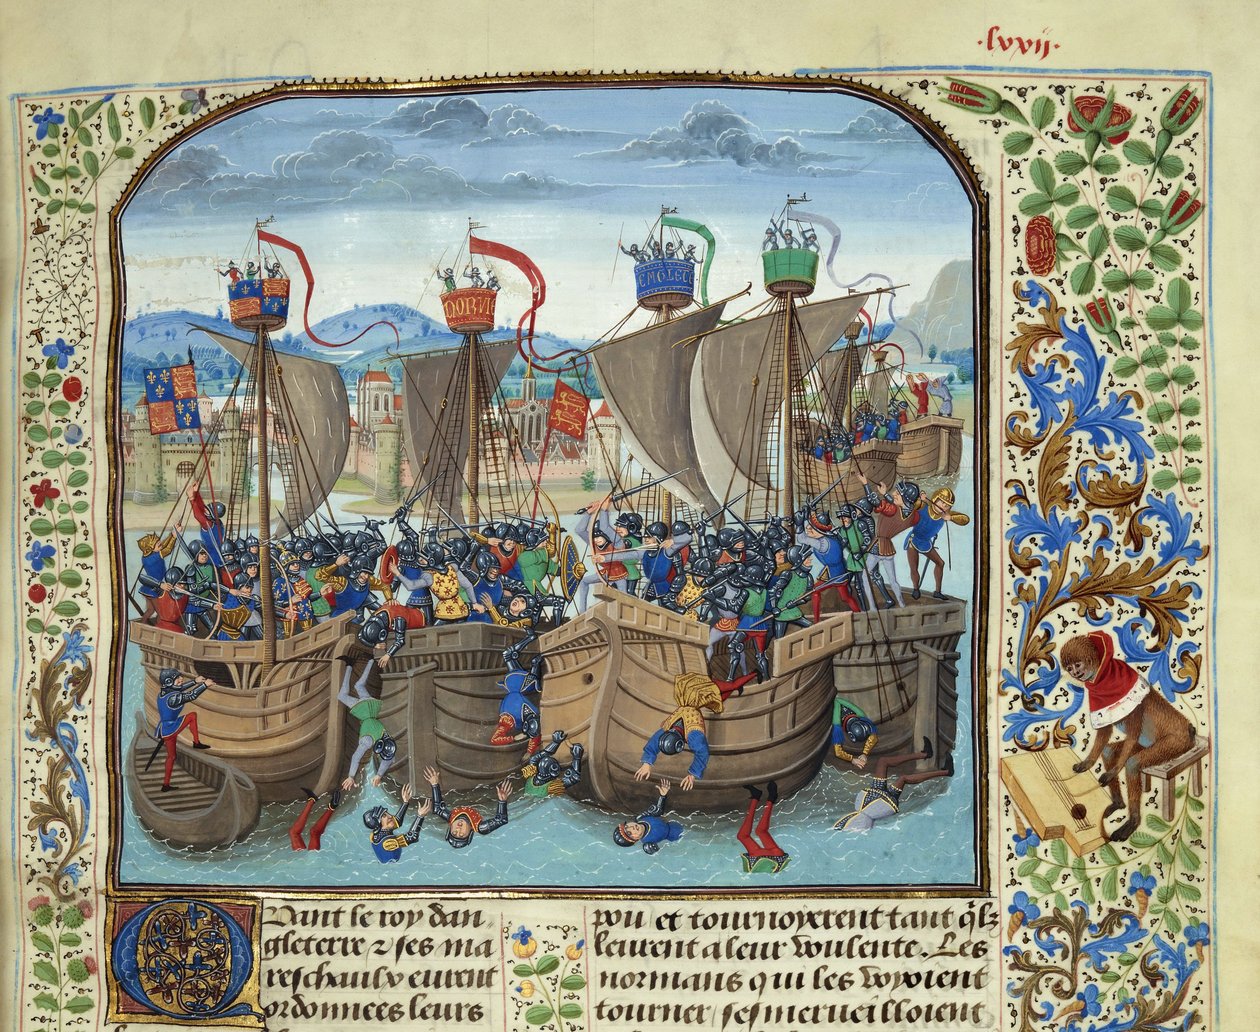 ·lxxij·
Quant le roy dan
gleterre ⁊ ses ma
reschaulx eurent
ordonnees leurs
pou et tournoyerent tant qlz
leurent a leur voulente. Les
normans qui les voyoient
tourner sesmerueilloient